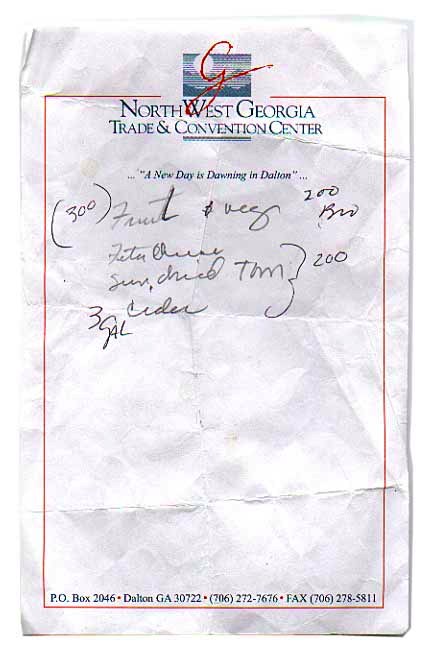 G
NORTHWEST GEORGIA
TRADE & CONVENTION CENTER
... "A New Day is Dawning in Dalton" ...
(300) Fruit & veg 200
Feta Cheese
sun dried Tom } 200
3 GAL Cider
P.O. Box 2046 • Dalton GA 30722 • (706) 272-7676 • FAX (706) 278-5811